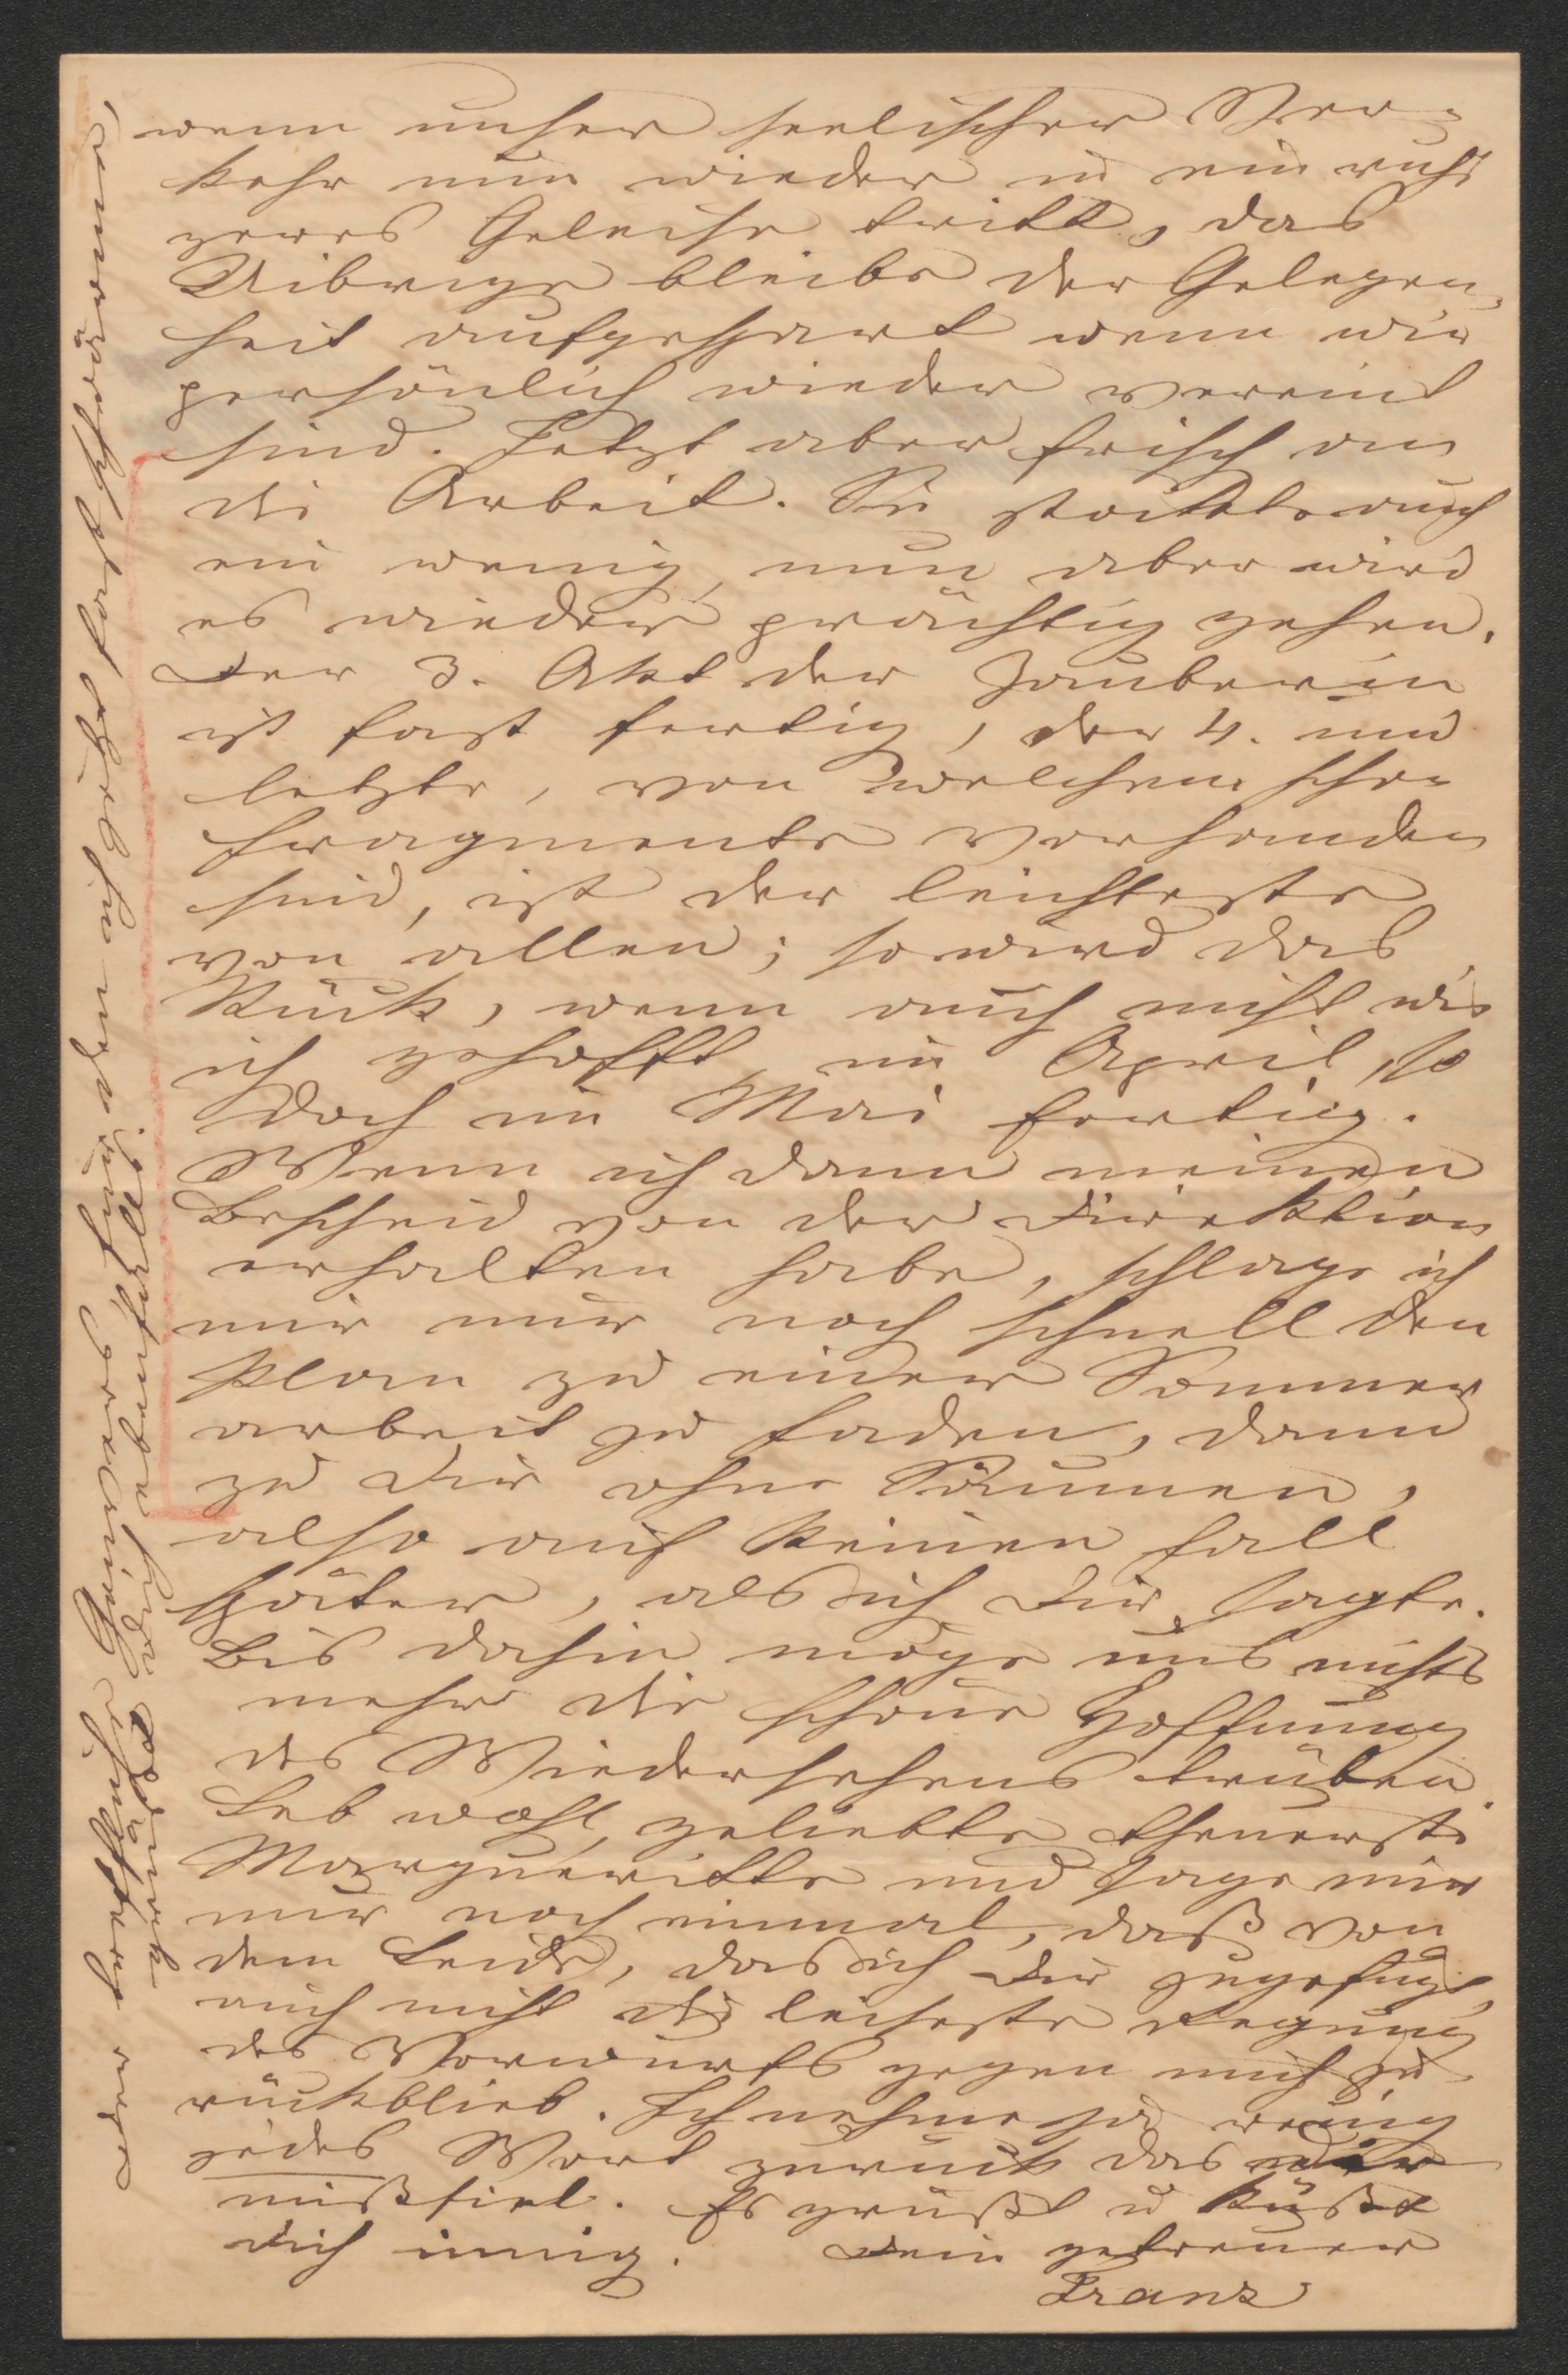 wenn unser seelischer Ver-
kehr nun wieder in ein ruhi
geres Geleise tritt, das
Uibrige bleibe der Gelegen-
heit aufgespart wenn wir
persönlich wieder vereint
sind. Jetzt aber frisch an
die Arbeit. Sie stockte auch
ein wenig, nun aber wird
es wieder prächtig gehen.
Der 3. Akt der Zauberin
ist fast fertig, der 4. und
letzte, von welchem schon
Fragmente vorhanden
sind, ist der leichteste
von allen; so wird das
Stück, wenn auch nicht wie
ich gehofft im April, so
doch im Mai fertig.
Wenn ich dann meinen
Bescheid von der Direktion
erhalten habe, schlage ich
mir nur noch schnell den
Plan zu einer Sommer
arbeit zu Faden, dann
zu Dir ohne Säumen,
also auf keinen Fall
später, als ich Dir sagte.
Bis dahin möge uns nichts
mehr die schöne Hoffnung
des Wiedersehens trüben.
Leb wohl, geliebte theuerste
Marguéritte und sage mir
nur noch einmal, daß von
dem Leide, das ich Dir zugefügt,
auch nicht die leiseste Regung
des Vorwurfs gegen mich zu
rückblieb. Ich nehme ja reuig
jedes Wort zurück das Dir
mißfiel. Es grüßt u küßt
Dich innig. Dein getreuer
Franz